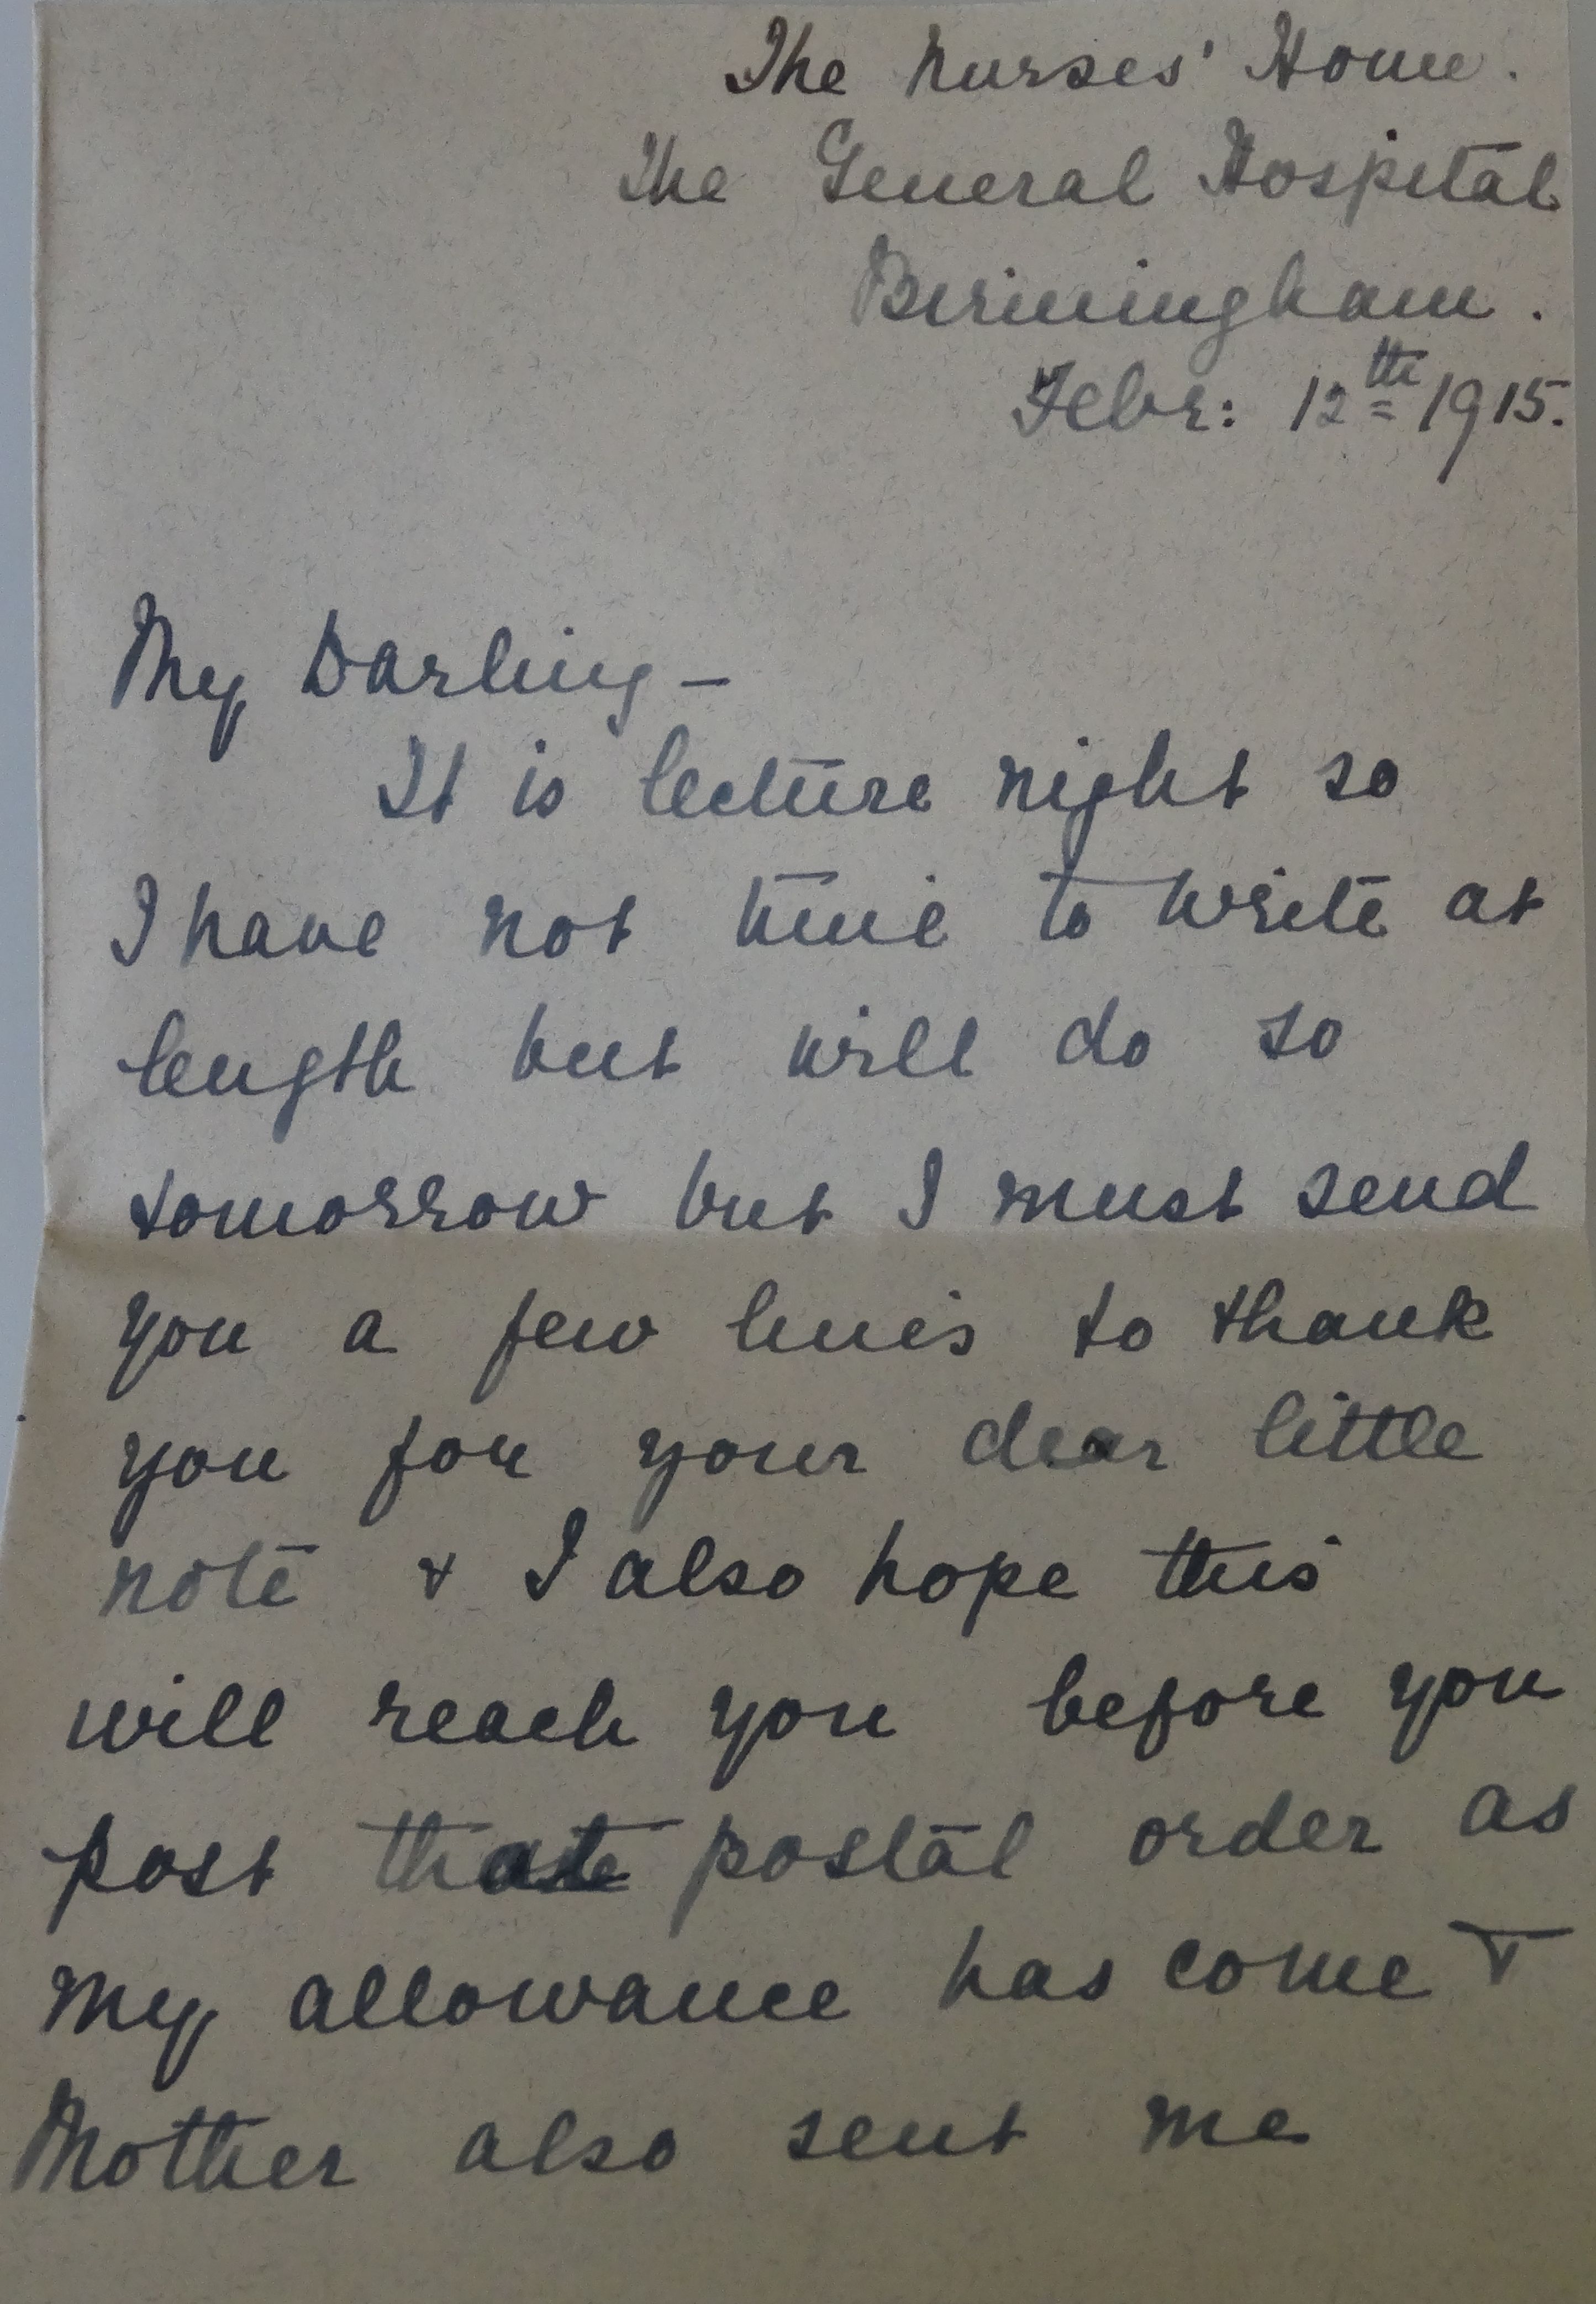 The Nurses' Home.
The General Hospital
Birmingham.
Febr: 12th 1915.
My Darling –
It is lecture night so
I have not time to write at
length but will do so
tomorrow but I must send
you a few lines to thank
you for your dear little
note & I also hope this
will reach you before you
post that postal order as
my allowance has come &
Mother also sent me